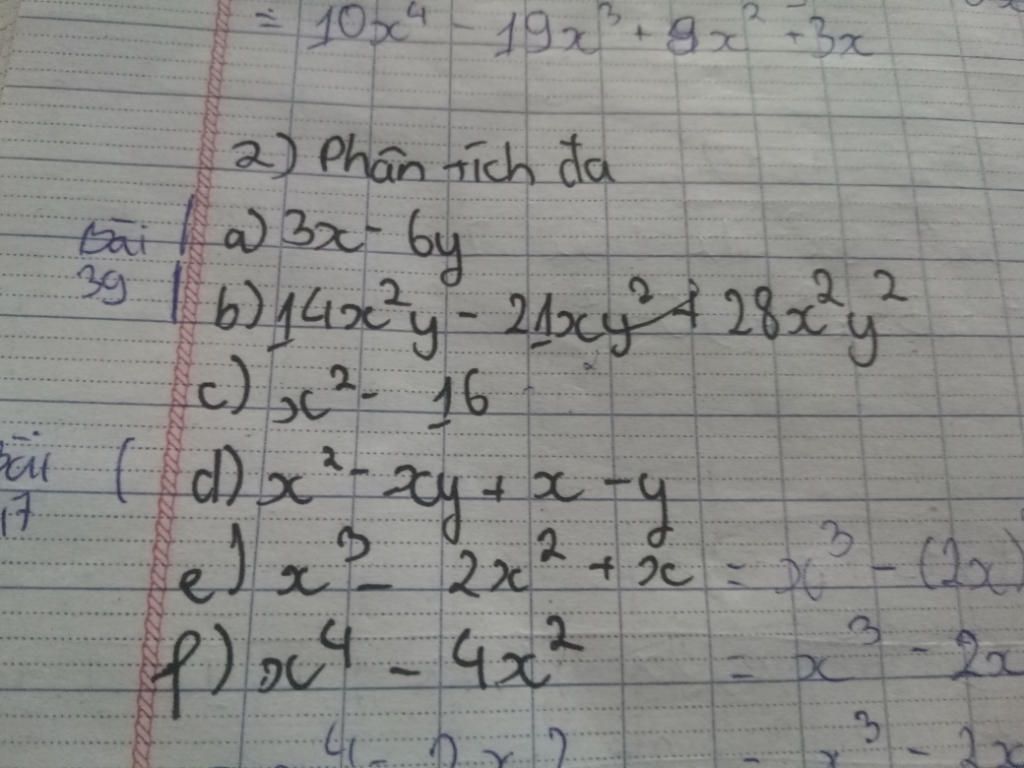 = 10x⁴ - 19x³ + 9x² + 3x
2) Phân tích đa
bài 39
a) 3x - 6y
b) 14x²y - 21xy² + 28x²y²
c) x² - 16
bài 17
d) x² - xy + x - y
e) x³ - 2x² + x = x³ - (2x)
f) x⁴ - 4x² = x³ - 2x
= x³ - 2x